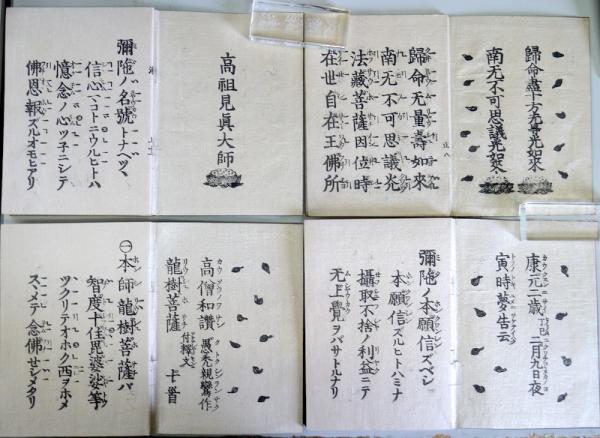 歸命盡十方无㝵光如來
南无不可思議光如來
歸命无量壽如來
南无不可思議光
法藏菩薩因位時
在世自在王佛所
高祖見眞大師
彌陀ノ名號トナヘツヽ
信心マコトニウルヒトハ
憶念ノ心ツネニシテ
佛恩報ズルオモヒアリ
康元二歳丁巳二月九日夜
寅時夢告云
彌陀ノ本願信ズベシ
本願信ズルヒトハミナ
攝取不捨ノ利益ニテ
无上覺ヲバサトルナリ
高僧和讚 愚禿親鸞作
龍樹菩薩 付釋文 十首
㊀本師龍樹菩薩ハ
智度十住毘婆娑等
ツクリテオホク西ヲホメ
スヽメテ念佛セシメタリ